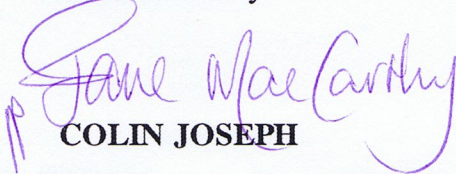 Jane MacCarthy
pp
COLIN JOSEPH